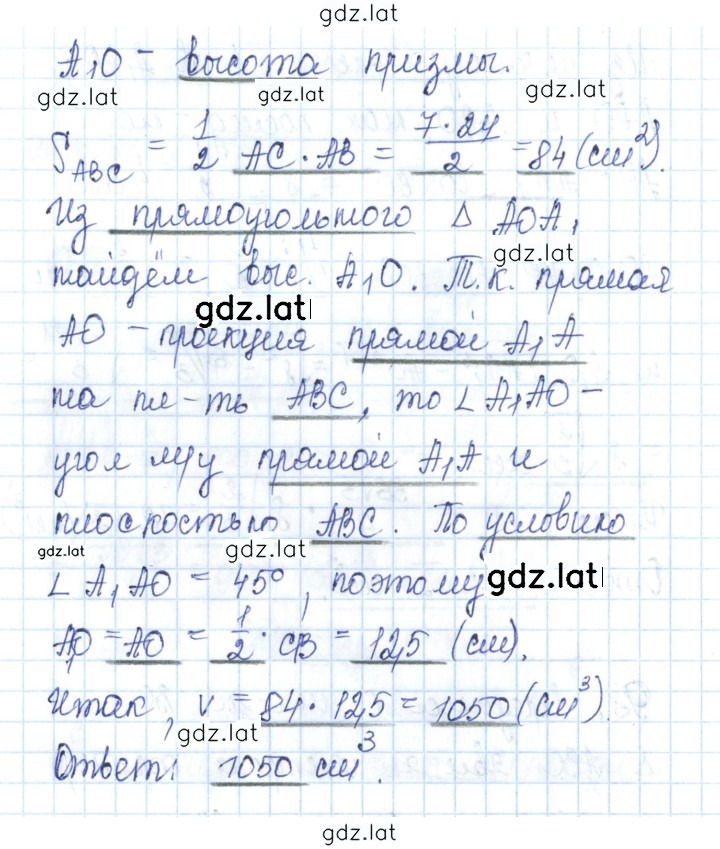 gdz.lat
A₁O – высота призмы.
gdz.lat gdz.lat gdz.lat
S_ABC = 1/2 AC · AB = 7·24/2 = 84 (см²).
Из прямоугольного Δ AOA₁
gdz.lat
найдём выс. A₁O. Т.к. прямая
gdz.lat
AO – проекция прямой A₁A
на пл-ть ABC, то ∠ A₁AO –
угол м/у прямой A₁A и
плоскостью ABC. По условию
gdz.lat gdz.lat gdz.lat
∠ A₁AO = 45°, поэтому
A₁O = AO = 1/2 · CB = 12,5 (см).
Итак, V = 84 · 12,5 = 1050 (см³).
gdz.lat
Ответ: 1050 см³.
gdz.lat